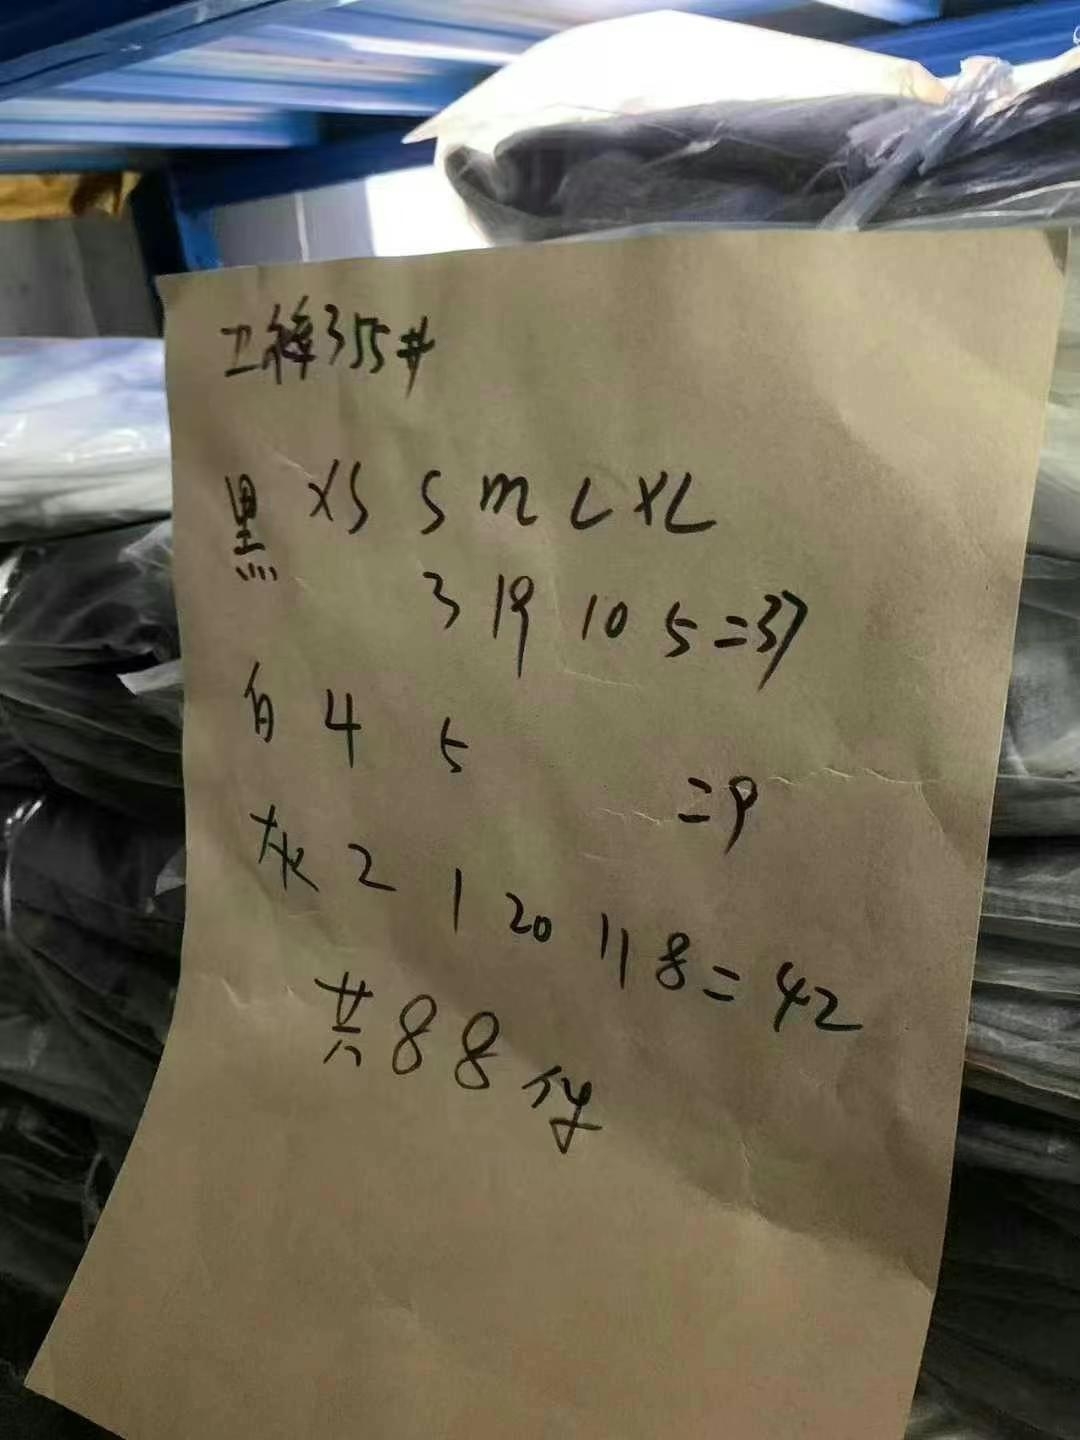 卫裤355#
黑 XS S M L XL
3 19 10 5=37
白 4 5 =9
灰 2 1 20 11 8=42
共88件